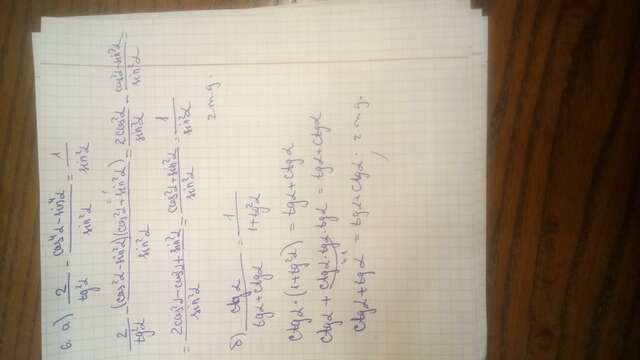 6. а) 2/tg²α − (cos⁴α − sin⁴α)/sin²α = 1/sin²α
2/tg²α − (cos²α − sin²α)(cos²α + sin²α)/sin²α = 2cos²α/sin²α − (cos²α − sin²α)/sin²α =
= (2cos²α − cos²α + sin²α)/sin²α = (cos²α + sin²α)/sin²α = 1/sin²α
ч.т.д.
б) ctgα/(tgα + ctgα) = 1/(1 + tg²α)
ctgα · (1 + tg²α) = tgα + ctgα
ctgα + ctgα · tgα · tgα = tgα + ctgα
ctgα + tgα = tgα + ctgα. ч.т.д.